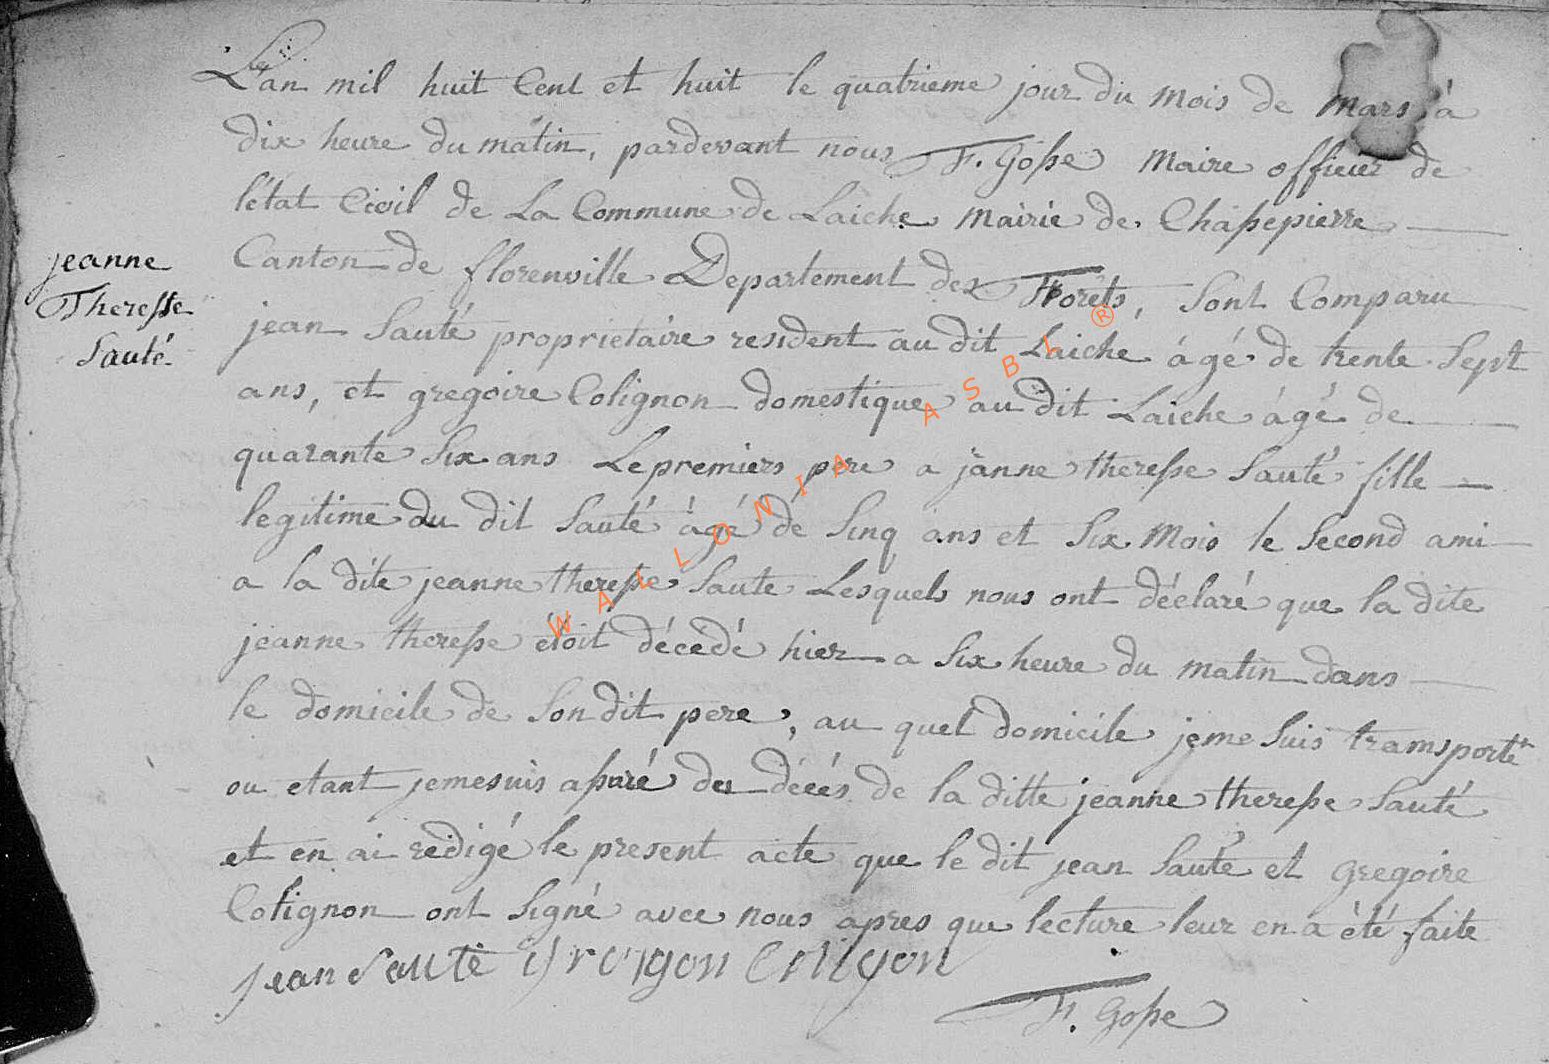 L'an mil huit Cent et huit le quatrieme jour du mois de mars à
dix heure du matin, pardevant nous F. Goſse maire officier de
l'état Civil de La Commune de Laiche mairie de Chaſsepierre
Canton de florenville Departement des Forêts, Sont Comparu
jeanne
Thereſse
Sauté
jean Sauté proprietaire resident au dit Laiche ágé de trente Sept
ans, et gregoire Colignon domestique au dit Laiche ágé de
quarante Six ans Le premiers pere a jeanne thereſse Sauté fille
legitime du dit Sauté ágé de Sinq ans et Six mois le Second ami
a la dite jeanne thereſse Saute Lesquels nous ont déclaré que la dite
jeanne thereſse étoit décédé hier a Six heure du matin dans
le domicile de Son dit pere, au quel domicile je me Suis transporté
ou etant je me suis aſsuré du décés de la ditte jeanne thereſse Sauté
et en ai redigé le present acte que le dit jean Sauté et gregoire
Colignon ont Signé avec nous apres que lecture leur en a été faite
jean Sauté Grégoir Colignon
F. Goſse
WALLONIA ASBL ®